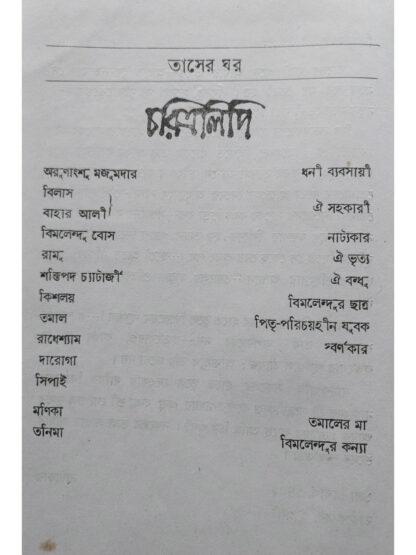 তাসের ঘর
চরিত্রলিপি
অরুণাংশু মজুমদার ধনী ব্যবসায়ী
বিলাস
বাহার আলী } ঐ সহকারী
বিমলেন্দু বোস নাট্যকার
রামু ঐ ভৃত্য
শক্তিপদ চ্যাটার্জী ঐ বন্ধু
কিশলয় বিমলেন্দুর ছাত্র
তমাল পিতৃ-পরিচয়হীন যুবক
রাধেশ্যাম স্বর্ণকার
দারোগা
সিপাই
মণিকা তমালের মা
তনিমা বিমলেন্দুর কন্যা